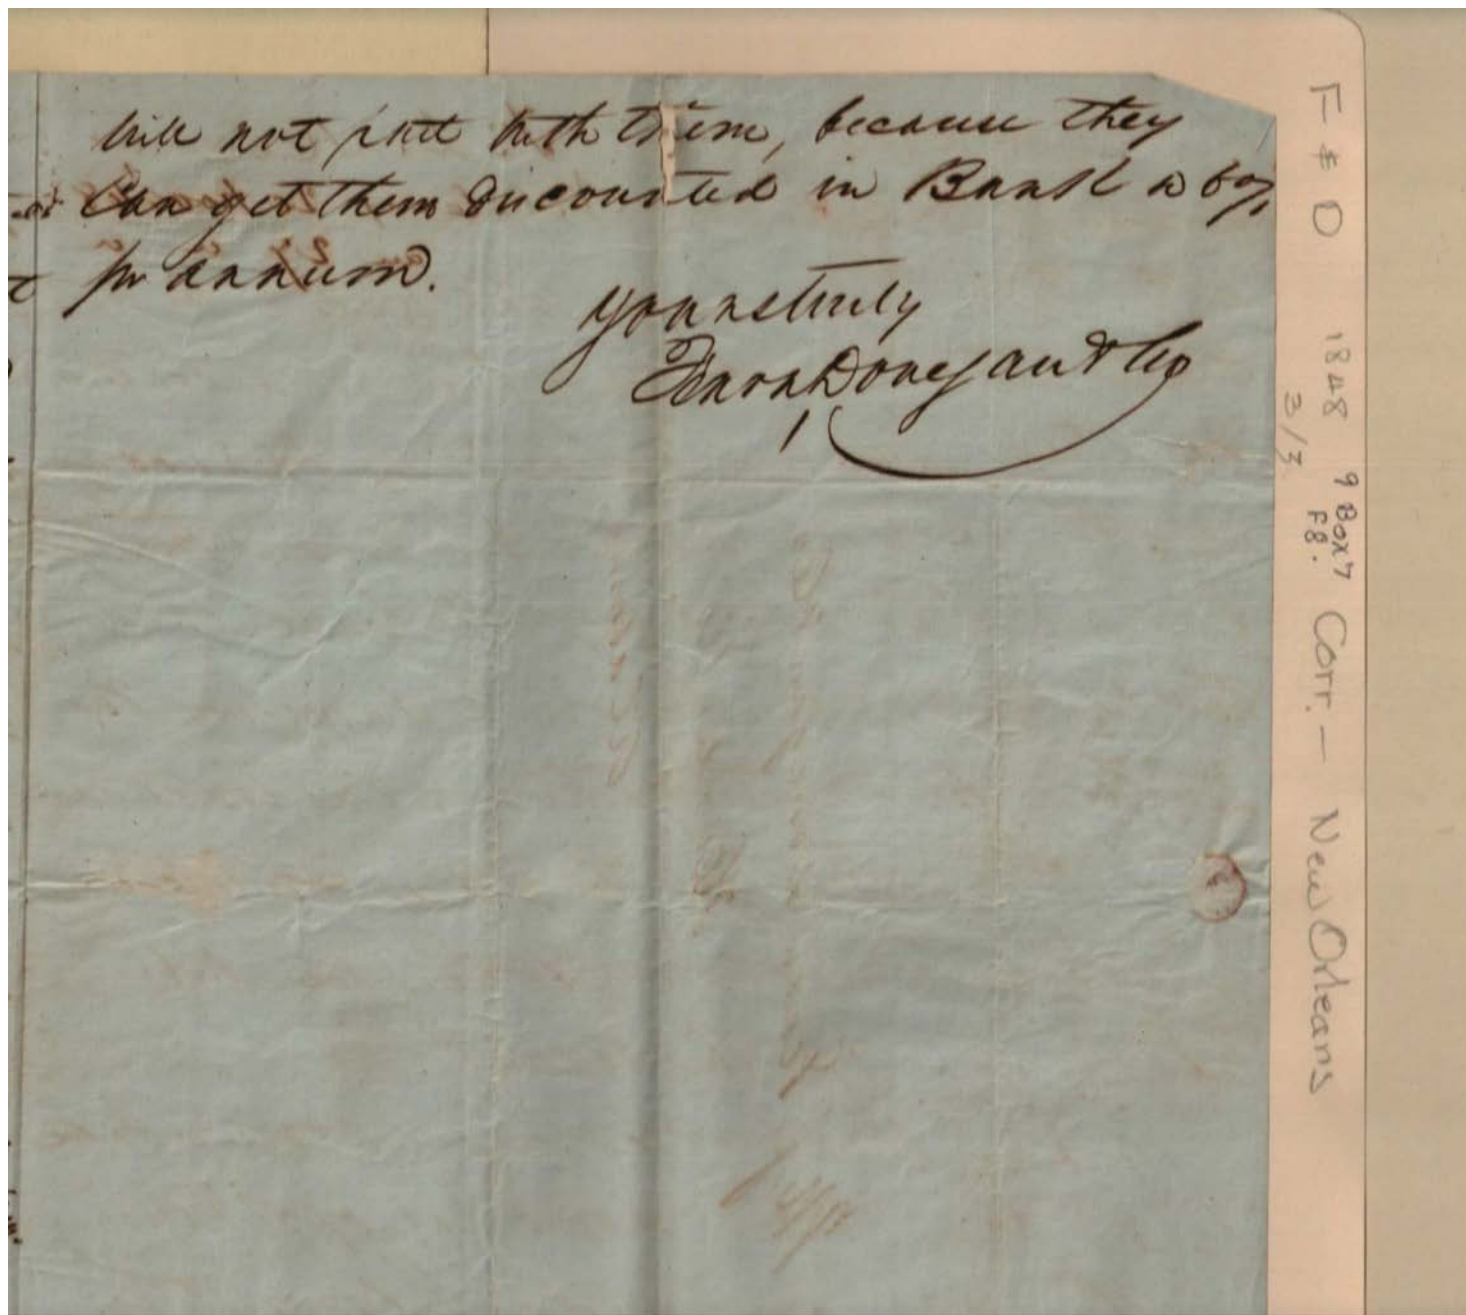 will not part with them, because they
can get them discounted in Bank a 6%
pr annum.
Yours truly
Fearn Donegan & Co
F & D 1848 9 Box 7 Corr. - New Orleans
3/3 F8.